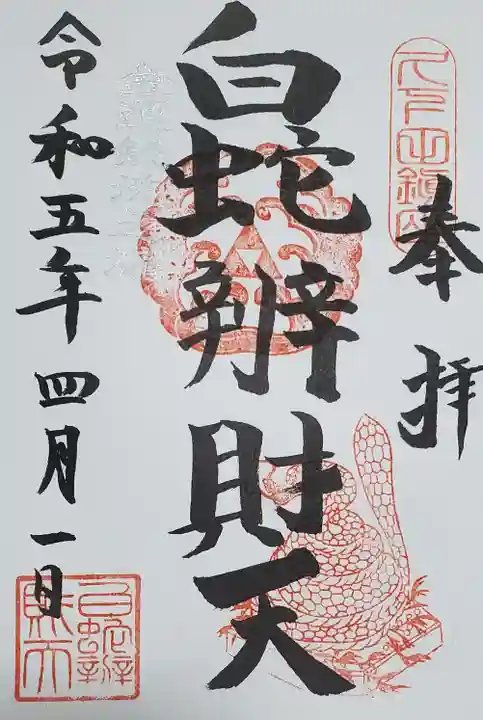 奉拝
白蛇辨財天
令和五年四月一日
白蛇辨
財天